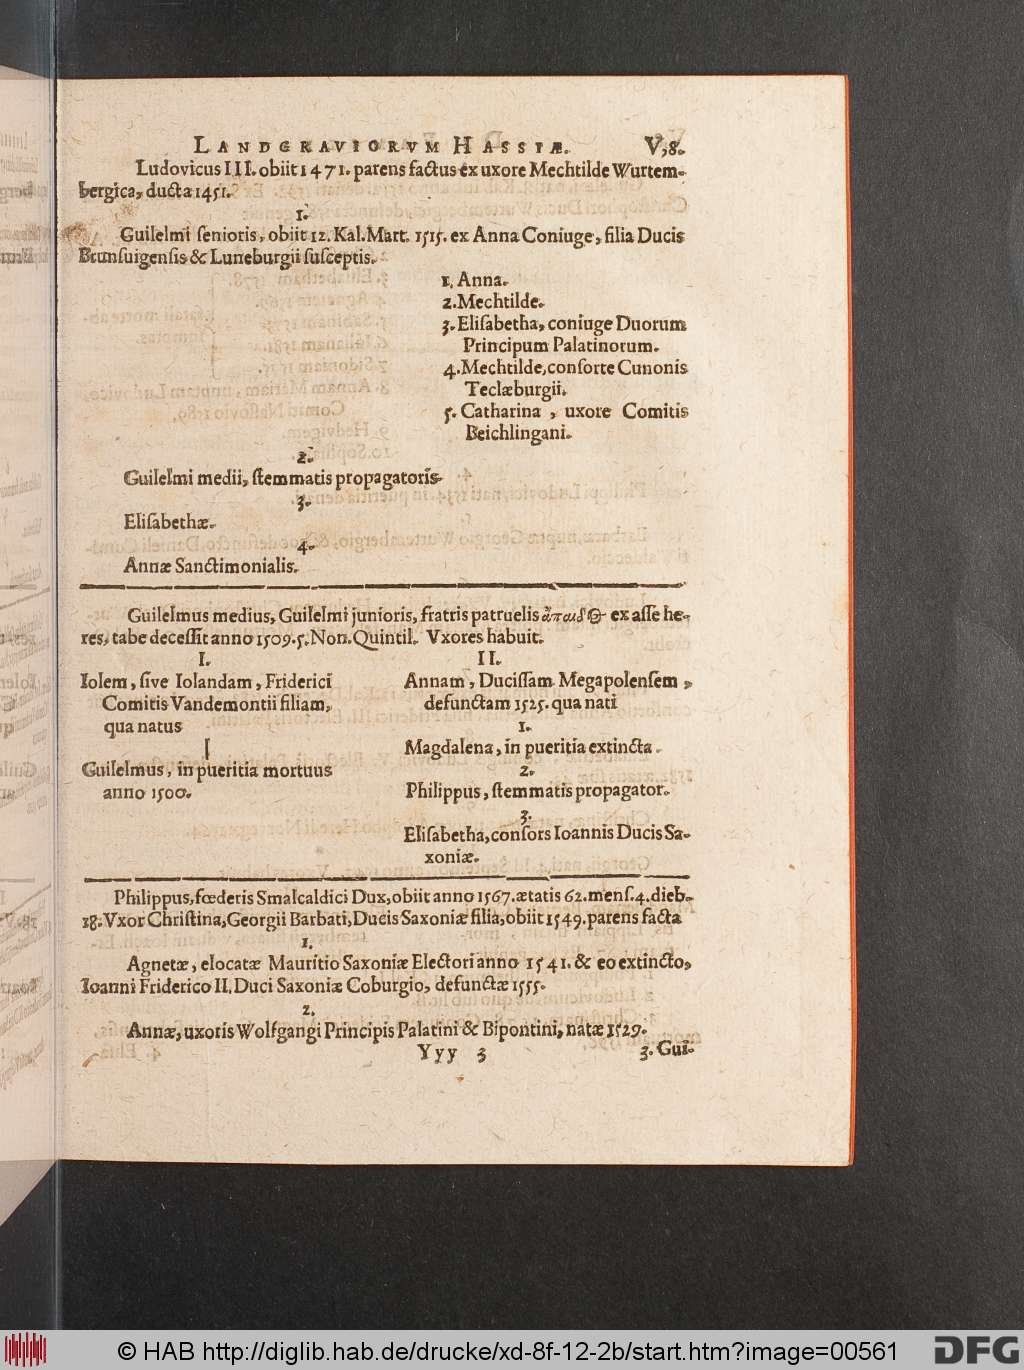 LANDGRAVIORVM HASSIÆ. V,8.
Ludovicus III. obiit 1471. parens factus ex uxore Mechtilde Wurtem-
bergica, ducta 1451.
1.
Guilelmi senioris, obiit 12. Kal. Mart. 1515. ex Anna Coniuge, filia Ducis
Brunsuigensis & Luneburgii susceptis.
1. Anna.
2. Mechtilde.
3. Elisabetha, coniuge Duorum
Principum Palatinorum.
4. Mechtilde, consorte Cunonis
Teclæburgii.
5. Catharina, uxore Comitis
Beichlingani.
2.
Guilelmi medii, stemmatis propagatoris.
3.
Elisabethæ.
4.
Annæ Sanctimonialis.
Guilelmus medius, Guilelmi junioris, fratris patruelis ex asse he-
res, tabe decessit anno 1509. 5. Non. Quintil. Vxores habuit.
I.
Iolem, sive Iolandam, Friderici
Comitis Vandemontii filiam,
qua natus
Guilelmus, in pueritia mortuus
anno 1500.
II.
Annam, Ducissam Megapolensem,
defunctam 1525. qua nati
1.
Magdalena, in pueritia extincta.
2.
Philippus, stemmatis propagator.
3.
Elisabetha, consors Ioannis Ducis Sa-
xoniæ.
Philippus, fœderis Smalcaldici Dux, obiit anno 1567. ætatis 62. mens. 4. dieb.
18. Vxor Christina, Georgii Barbati, Ducis Saxoniæ filia, obiit 1549. parens facta
1.
Agnetæ, elocatæ Mauritio Saxoniæ Electori anno 1541. & eo extincto,
Ioanni Friderico II. Duci Saxoniæ Coburgio, defunctæ 1555.
2.
Annæ, uxoris Wolfgangi Principis Palatini & Bipontini, natæ 1529.
Yyy 3 3. Gui-
© HAB http://diglib.hab.de/drucke/xd-8f-12-2b/start.htm?image=00561
DFG